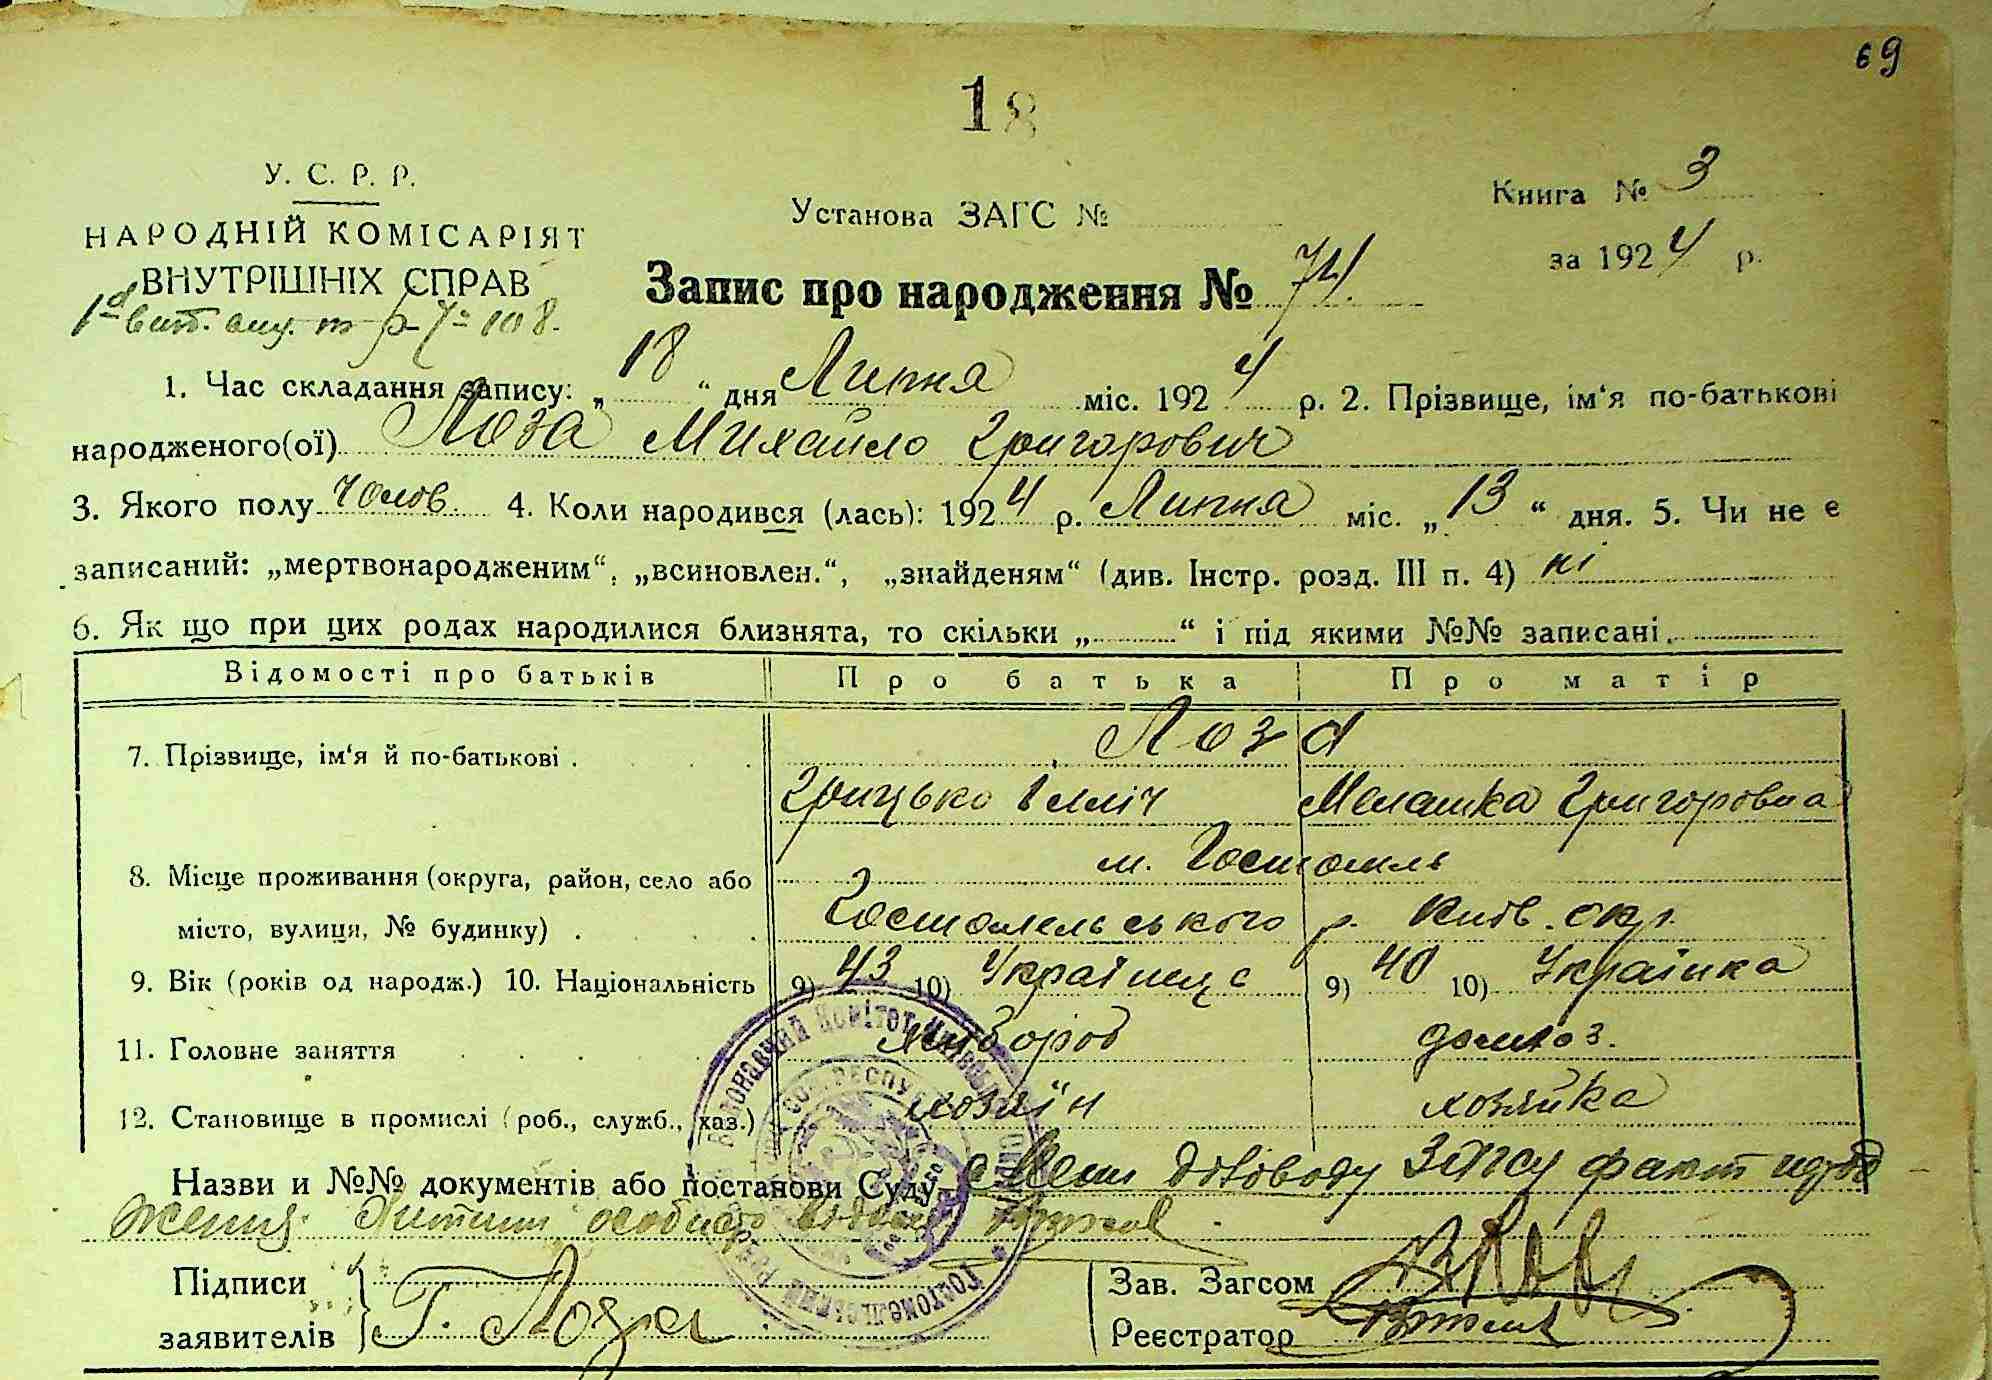 69
18
У. С. Р. Р.
НАРОДНІЙ КОМІСАРІЯТ
ВНУТРІШНІХ СПРАВ
Установа ЗАГС №
Книга № 3
за 1924 р.
Запис про народження № 74.
1. Час складання запису: „18“ дня Липня міс. 1924 р. 2. Прізвище, ім‘я по-батькові
народженого(ої) Лоза Михайло Григорович
3. Якого полу чолов. 4. Коли народився (лась): 1924 р. Липня міс. „13“ дня. 5. Чи не є
записаний: „мертвонародженим“, „всиновлен.“, „знайденям“ (див. Інстр. розд. III п. 4) ні
6. Як що при цих родах народилися близнята, то скільки „ “ і під якими №№ записані
Відомості про батьків Про батька Про матір
7. Прізвище, ім‘я й по-батькові . Лоза
Грицько Ілліч Мелашка Григоровна
8. Місце проживання (округа, район, село або м. Гостомль
місто, вулиця, № будинку) . Гостомельського р. Київ. окр.
9. Вік (років од народж.) 10. Національність 9) 43 10) Українец 9) 40 10) Українка
11. Головне заняття хлібороб домхоз.
12. Становище в промислі (роб., служб., хаз.) хозяїн хозяйка
Назви и №№ документів або постанови Суду доводу ЗАГСу факт народ
ження
Підписи
заявителів Г. Лоза
Зав. Загсом
Реєстратор